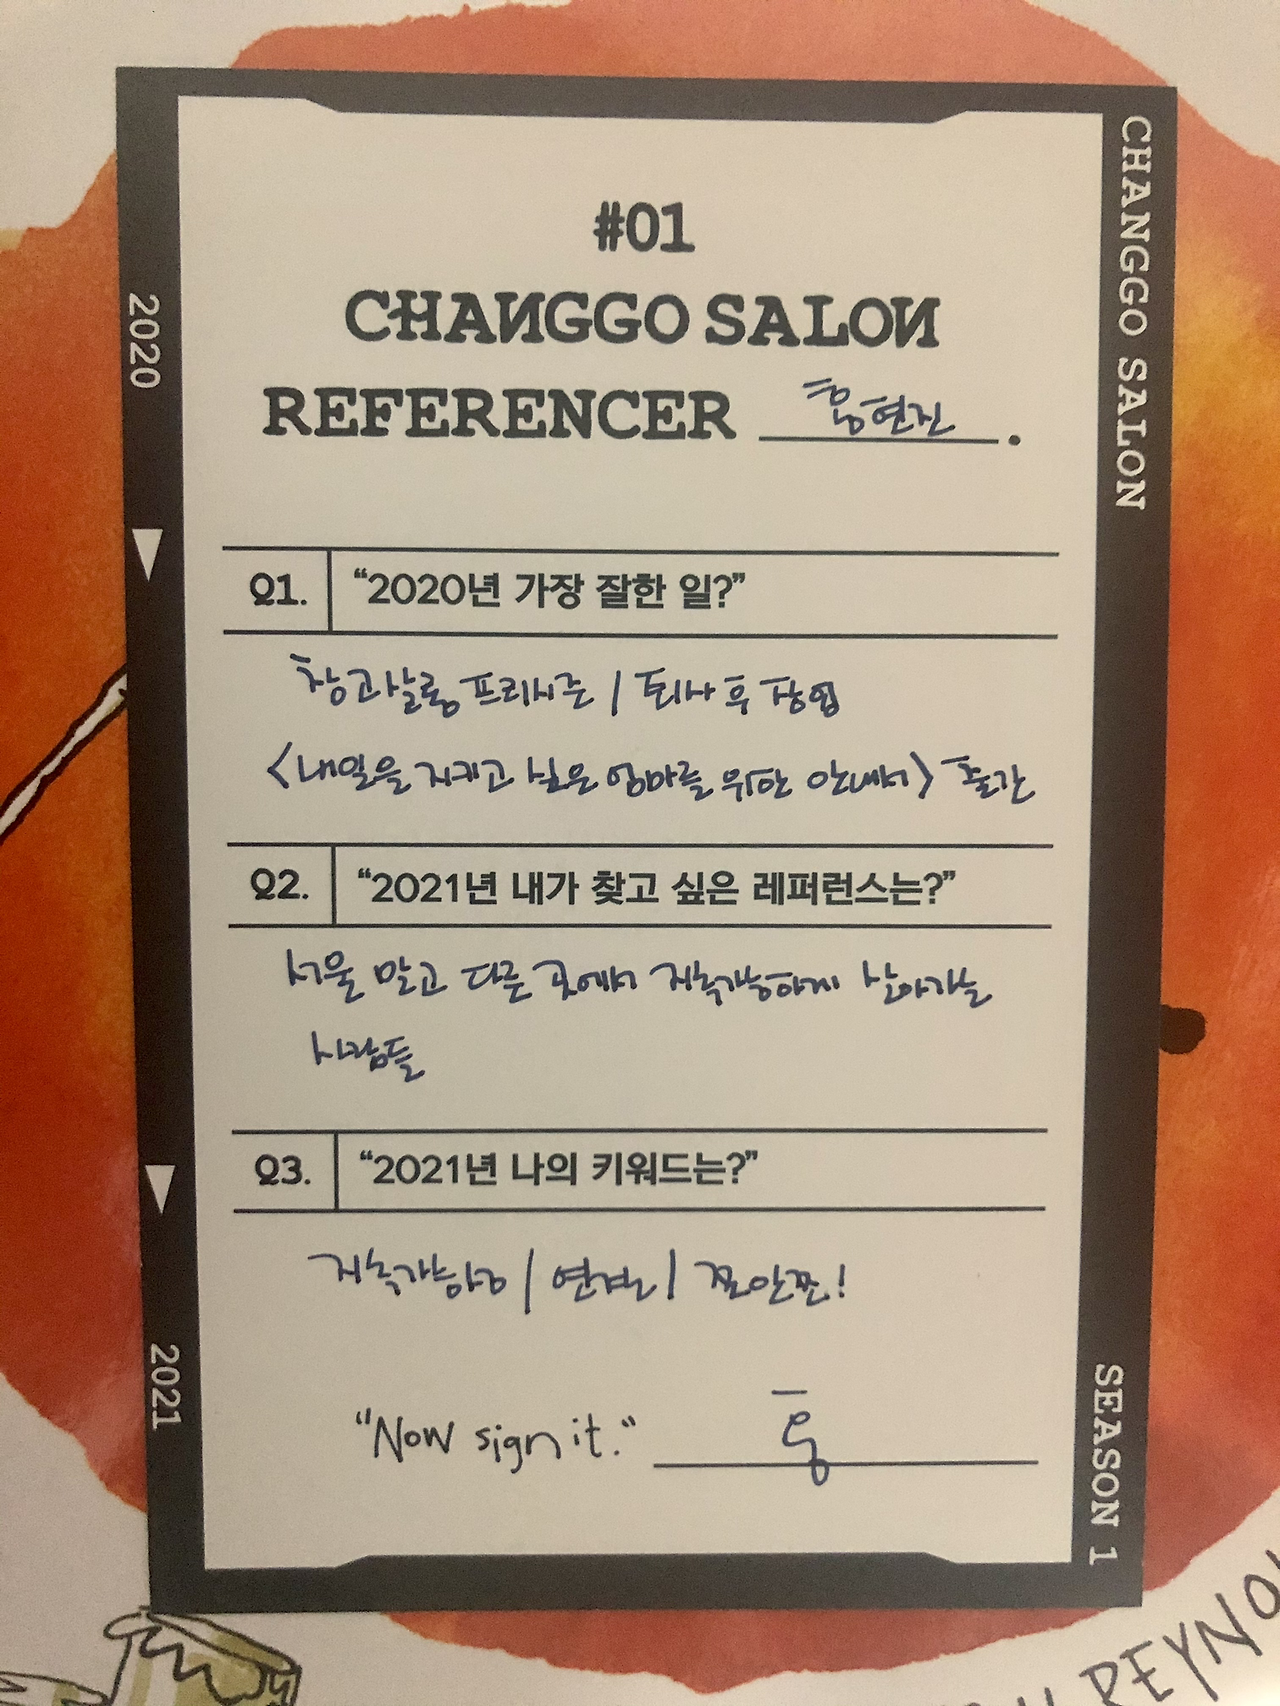 #01
CHANGGO SALON
REFERENCER 홍현진.
Q1. "2020년 가장 잘한 일?"
창고살롱 프리시즌 / 퇴사 후 창업
<내일을 지키고 싶은 엄마를 위한 안내서> 출간
Q2. "2021년 내가 찾고 싶은 레퍼런스는?"
서울 말고 다른 곳에서 지속가능하게 살아가는
사람들
Q3. "2021년 나의 키워드는?"
지속가능성 / 연결 / 쫄안쫄!
"Now sign it." 홍
2020
2021
CHANGGO SALON
SEASON 1
REYNO